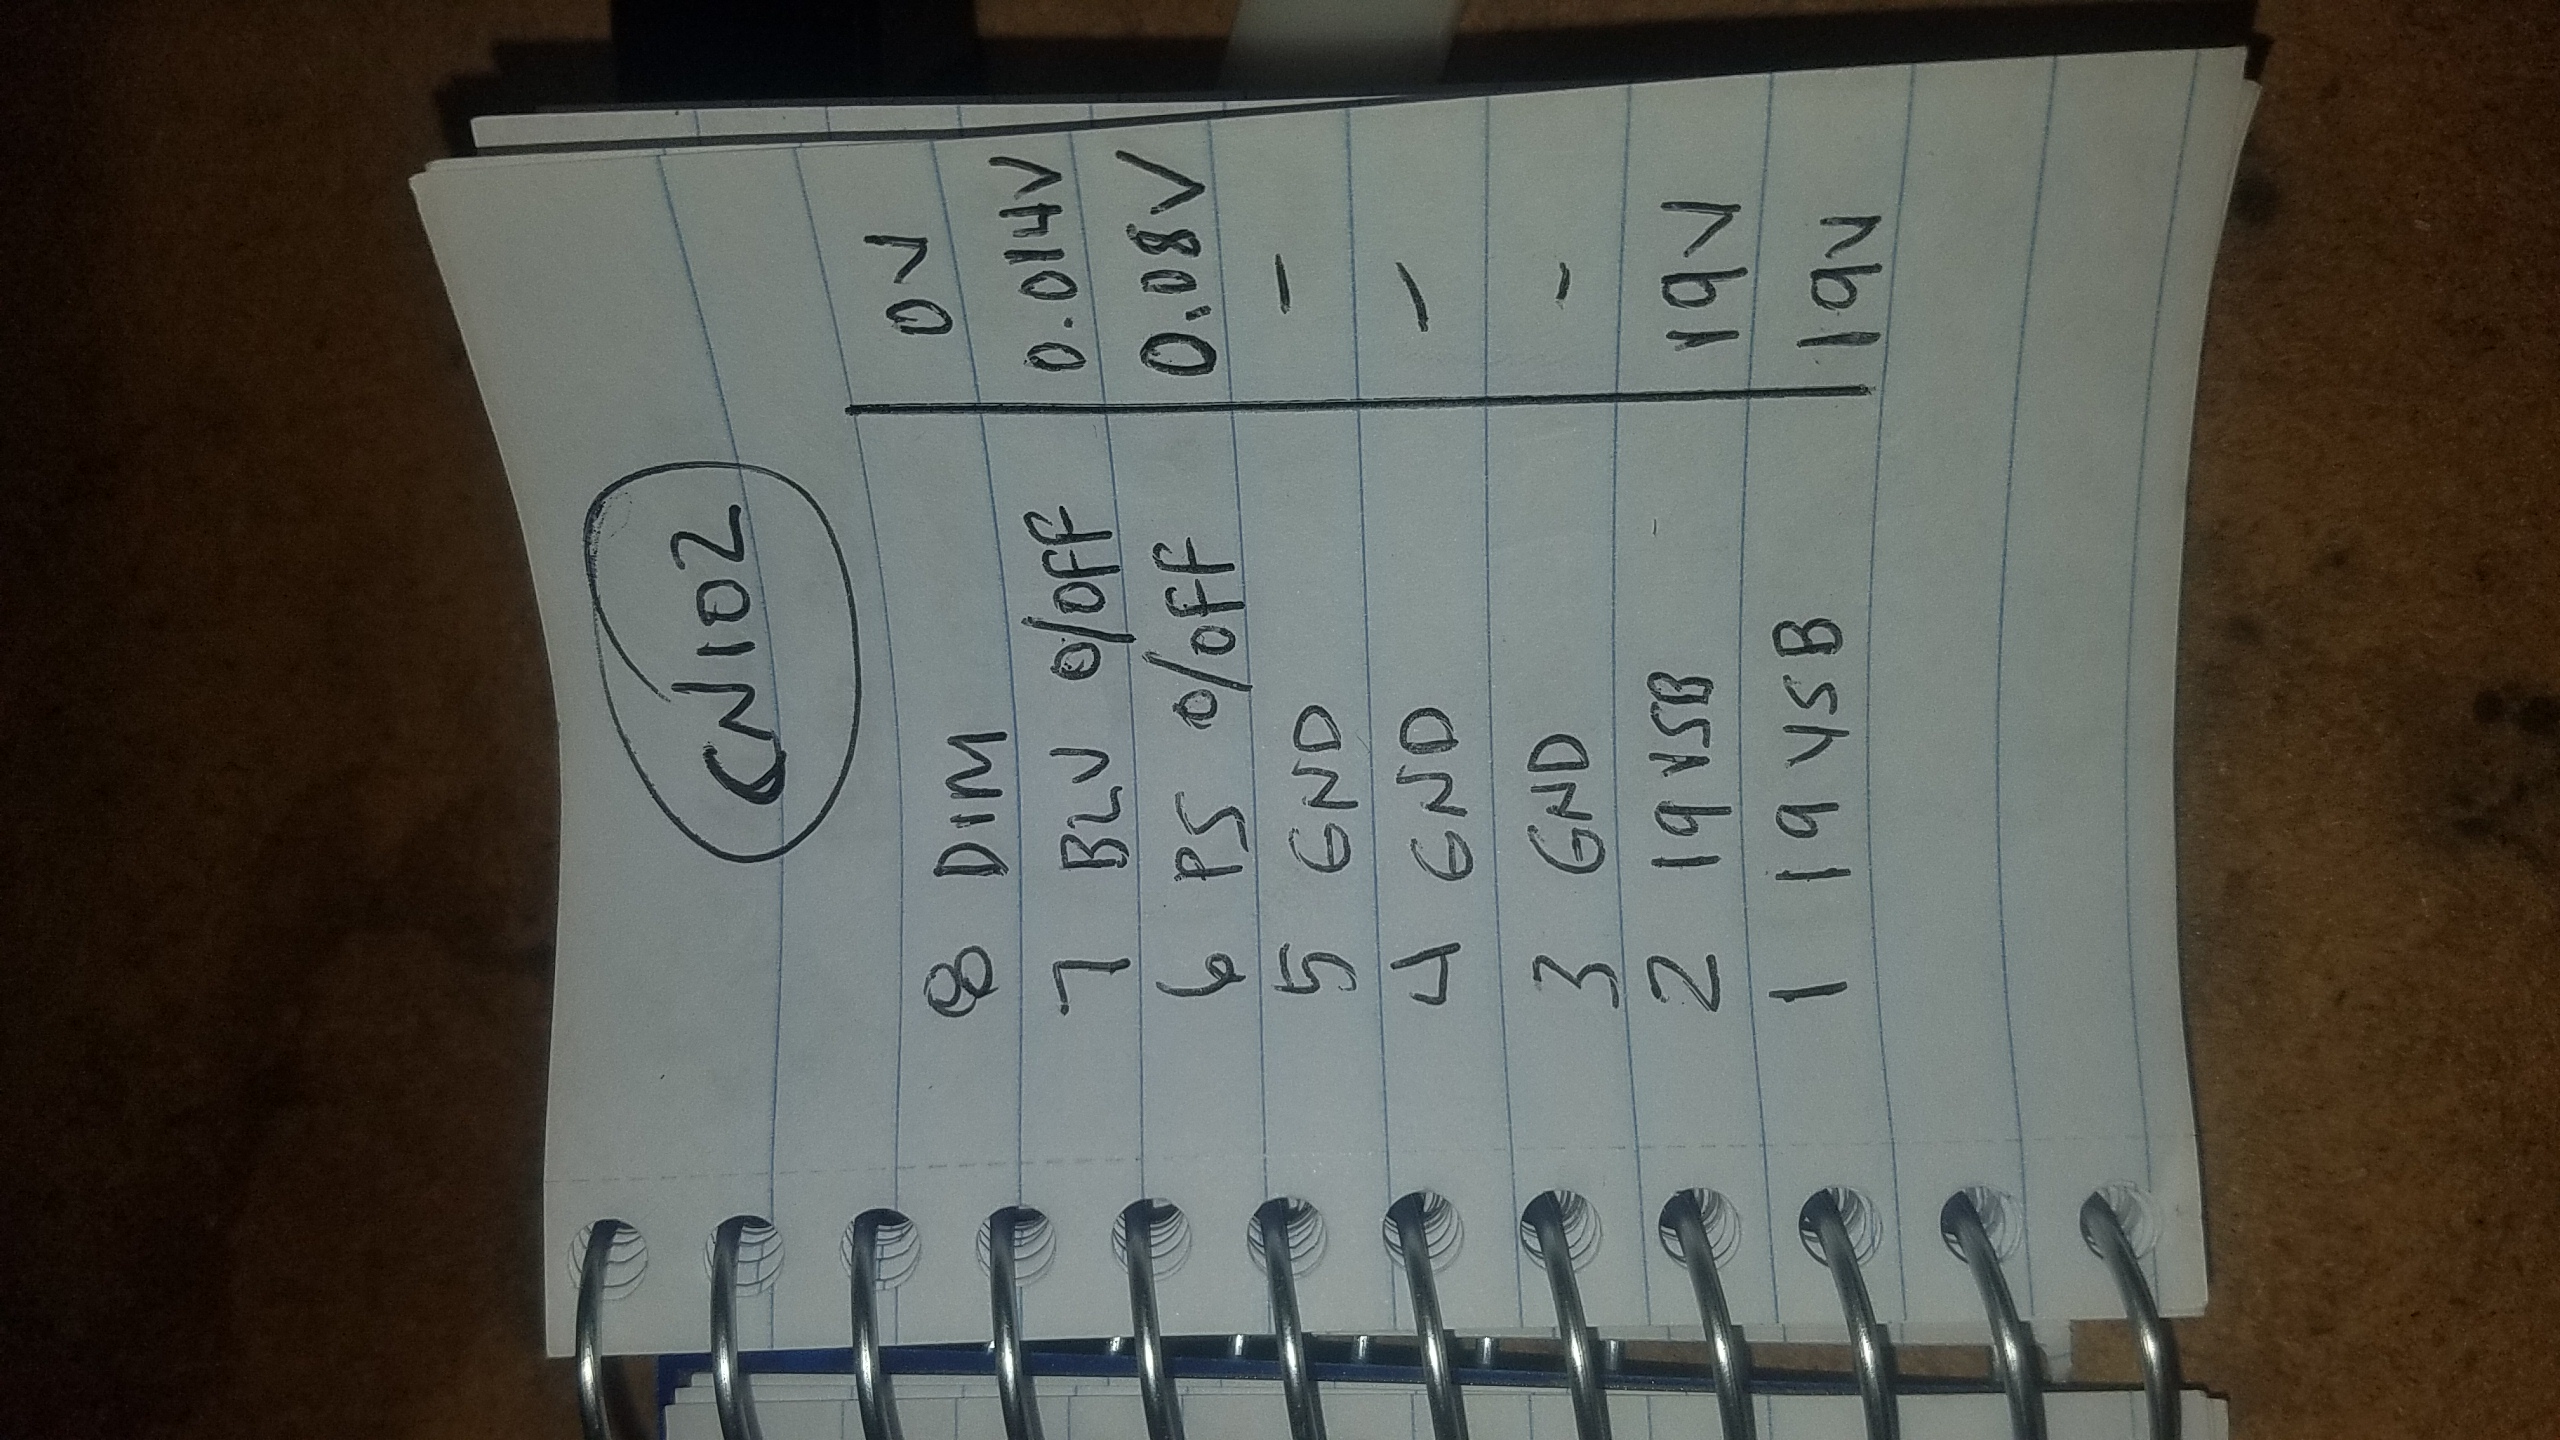 CN102
8 DIM 0V
7 BLU O/OFF 0.014V
6 PS O/OFF 0.08V
5 GND -
4 GND -
3 GND -
2 19 VSB 19V
1 19 VSB 19V